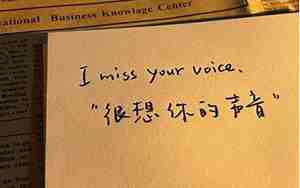 ational Business Knowlage Center
I miss your voice.
"很想你的声音"